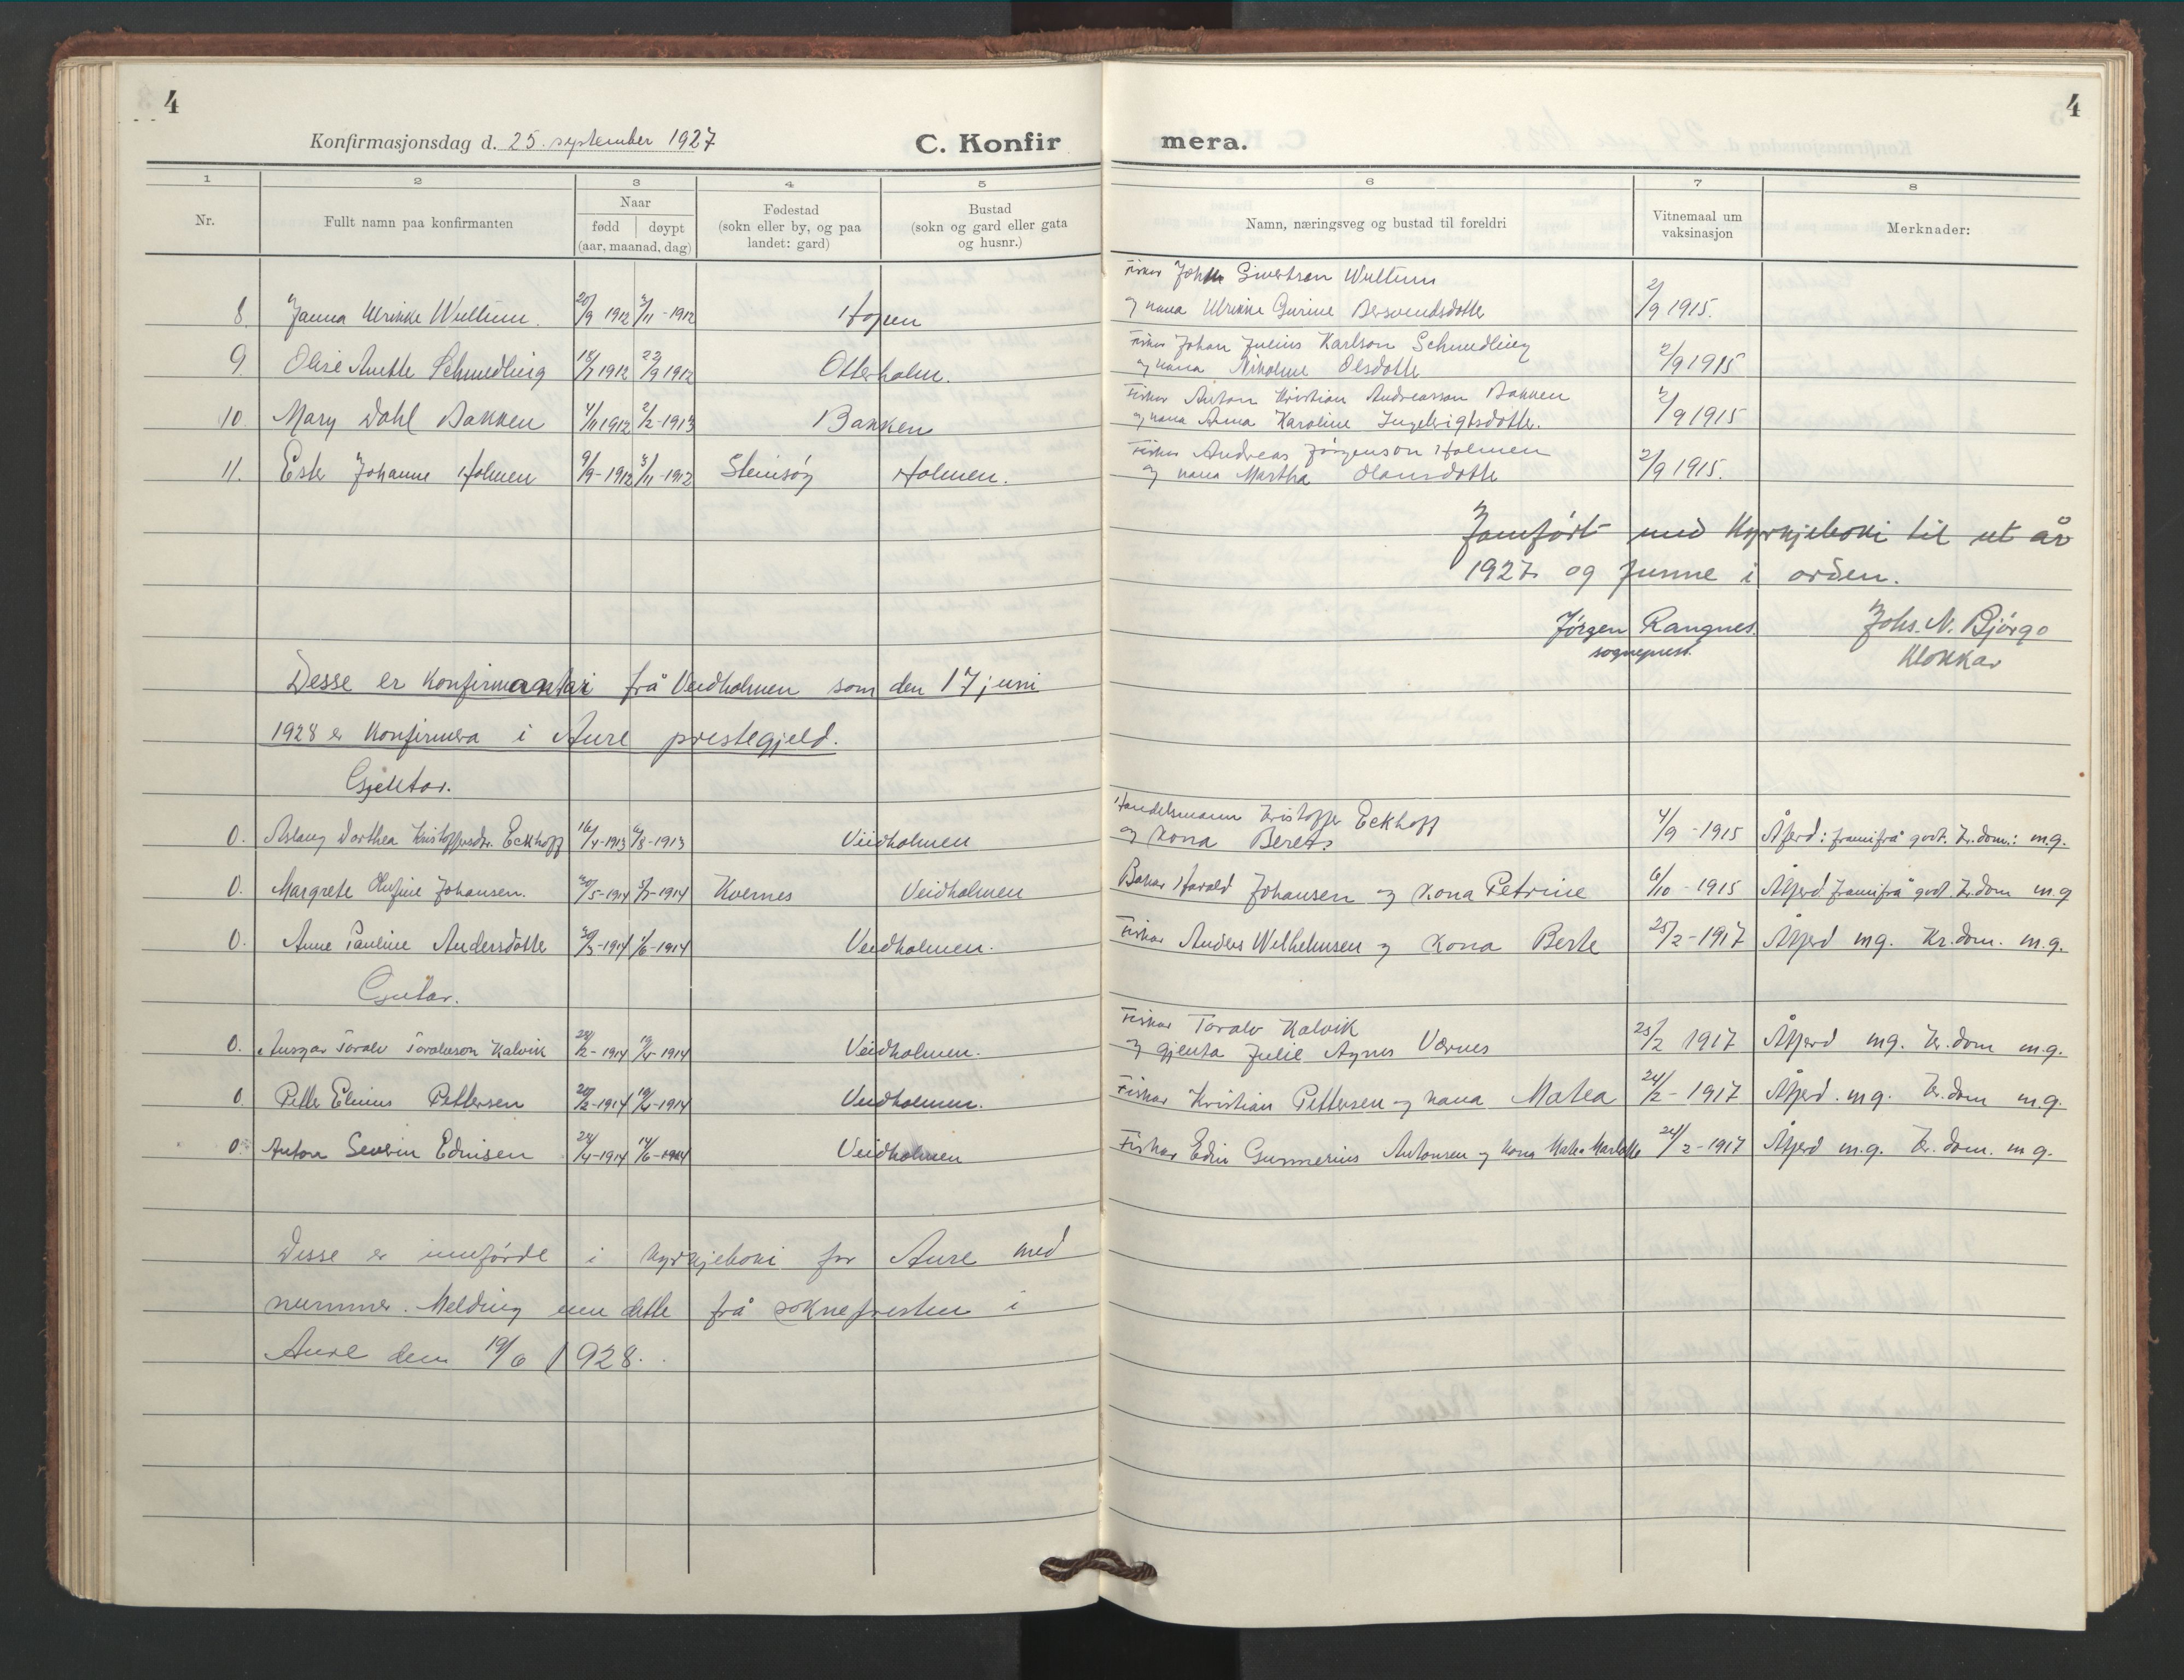 4
4
Konfirmasjonsdag d. 25. september 1927
C. Konfir mera.
1 2 3 4 5 6 7 8
Nr.
Fullt namn paa konfirmanten
Naar
fødd døypt
(aar, maanad, dag)
Fødestad
(sokn eller by, og paa
landet: gard)
Bustad
(sokn og gard eller gata
og husnr.)
Namn, næringsveg og bustad til foreldri
Vitnemaal um
vaksinasjon
Merknader:
Fiskar Johan Sivertsen Wullum
8. Janna Ulrikke Wullum. 20/9 1912 3/11-1912 Hopen og kona Ulrikke Gurine Bersvendsdotter 2/9 1915.
Fiskar Johan Julius Karlson Schmedling
9. Olise Anette Schmedling 18/7 1912 22/9 1912 Otterholm. og kona Nikoline Olsdotter 2/9 1915
Fiskar Anton Kristian Andreasson Bakken
10. Mary Dahl Bakken 4/11 1912 2/2-1913 Bakken og kona Anna Karoline Ingebrigtsdotter. 2/9 1915
Fiskar Andreas Jörgenson Holmen
11. Ester Johanne Holmen 9/9-1912 3/11-1912 Steinsöy Holmen. og kona Martha Hansdotter 2/9 1915.
Jamført med Kyrkjeboki til ut år
1927 og funne i orden.
Jörgen Rangnes. Johs. N. Björgo
sogneprest. Klokkar
Desse er konfirmantar frå Veidholmen som den 17 juni
1928 er konfirmera i Aure prestegjeld.
Gjentor.
Handelsmann Kristoffer Eckhoff
0. Aslaug Dorthea Kristoffersdr. Eckhoff 16/4-1913 /8-1913 Veidholmen og kona Beret. 4/9-1915 Åferd: framifrå godt. Kr.dom.: m.g.
0. Margrete Olufine Johansen. 20/5-1914 5/7-1914 Kvernes Veidholmen Bakar Harald Johansen og kona Petrine 6/10-1915 Åtferd framifrå godt. Kr.dom m.g
0. Anne Pauline Andersdotter 20/3-1914 1/6-1914 Veidholmen. Fiskar Anders Wilhelmsen og kona Berte 25/2-1917 Åtferd mg. Kr.dom. m.g.
Gutar.
Fiskar Toralv Kalvik
0. Ansgar Toralv Toralvson Kalvik /2-1914 19/4-1914 Veidholmen. og gjenta Julie Agnes Værnes 25/2 1917 Åtferd mg. Kr.dom m.g.
0. Petter Elinus Pettersen 20/2-1914 19/4-1914 Veidholmen. Fiskar Kristian Pettersen og kona Matea 24/2-1917 Åtferd. m.g. Kr.dom m.g.
0. Anton Severin Edinsen /4-1914 14/6-1914 Veidholmen Fiskar Edin Gunnerius Antonsen og kona 24/2-1917 Åtferd m.g. Kr.dom. m g.
Desse er innförde i kyrkjeboki for Aure med
nummer. Melding um dette frå sokneprestен i
Aure dem 19/6 1928.